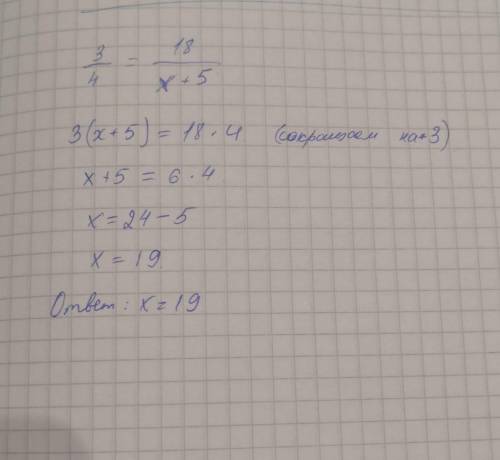 3/4 = 18/(x+5)
3(x+5) = 18·4 (сокращаем на 3)
x+5 = 6·4
x = 24-5
x = 19
Ответ: x = 19